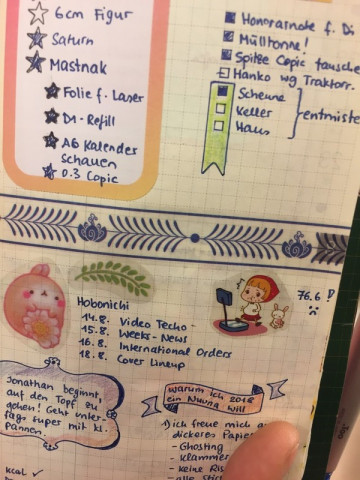 6cm Figur
Saturn
Mastnak
Folie f. Laser
D1-Refill
A6 Kalender
schauen
0.3 Copic
Honorarnote f. Di
Mülltonne!
Spitze Copic tausche
Hanko wg Traktorr.
Scheune
Keller
Haus
entmiste
Hobonichi
14.8. Video Techo
15.8. Weeks-News
16.8. International Orders
18.8. Cover Lineup
76.6
Jonathan beginnt,
auf den Topf zu
gehen! Geht unter
tags super mit kl.
Pannen.
kcal ✓
warum ich 2018
ein Nuuna will
1) ich freue mich a
dickeres Papier
- Ghosting
- Klammer
- keine Ris
- alle